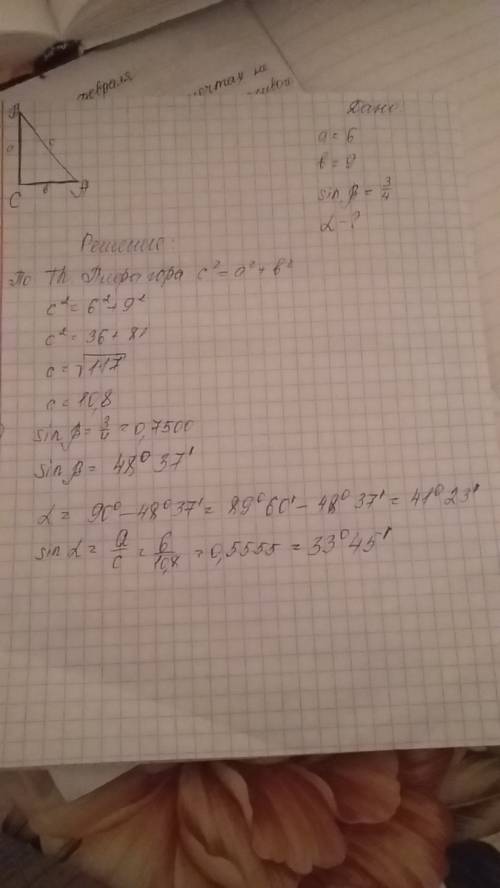 февраля
Дано
B
a
c
C
b
A
a = 6
b = 9
sin β = 3/4
α - ?
Решение:
По Th. Пифагора c² = a² + b²
c² = 6² + 9²
c² = 36 + 81
c = √117
c = 10,8
sin β = 3/4 = 0,7500
sin β = 48° 37'
α = 90° - 48° 37' = 89° 60' - 48° 37' = 41° 23'
sin α = a/c = 6/10,8 = 0,5555 = 33° 45'